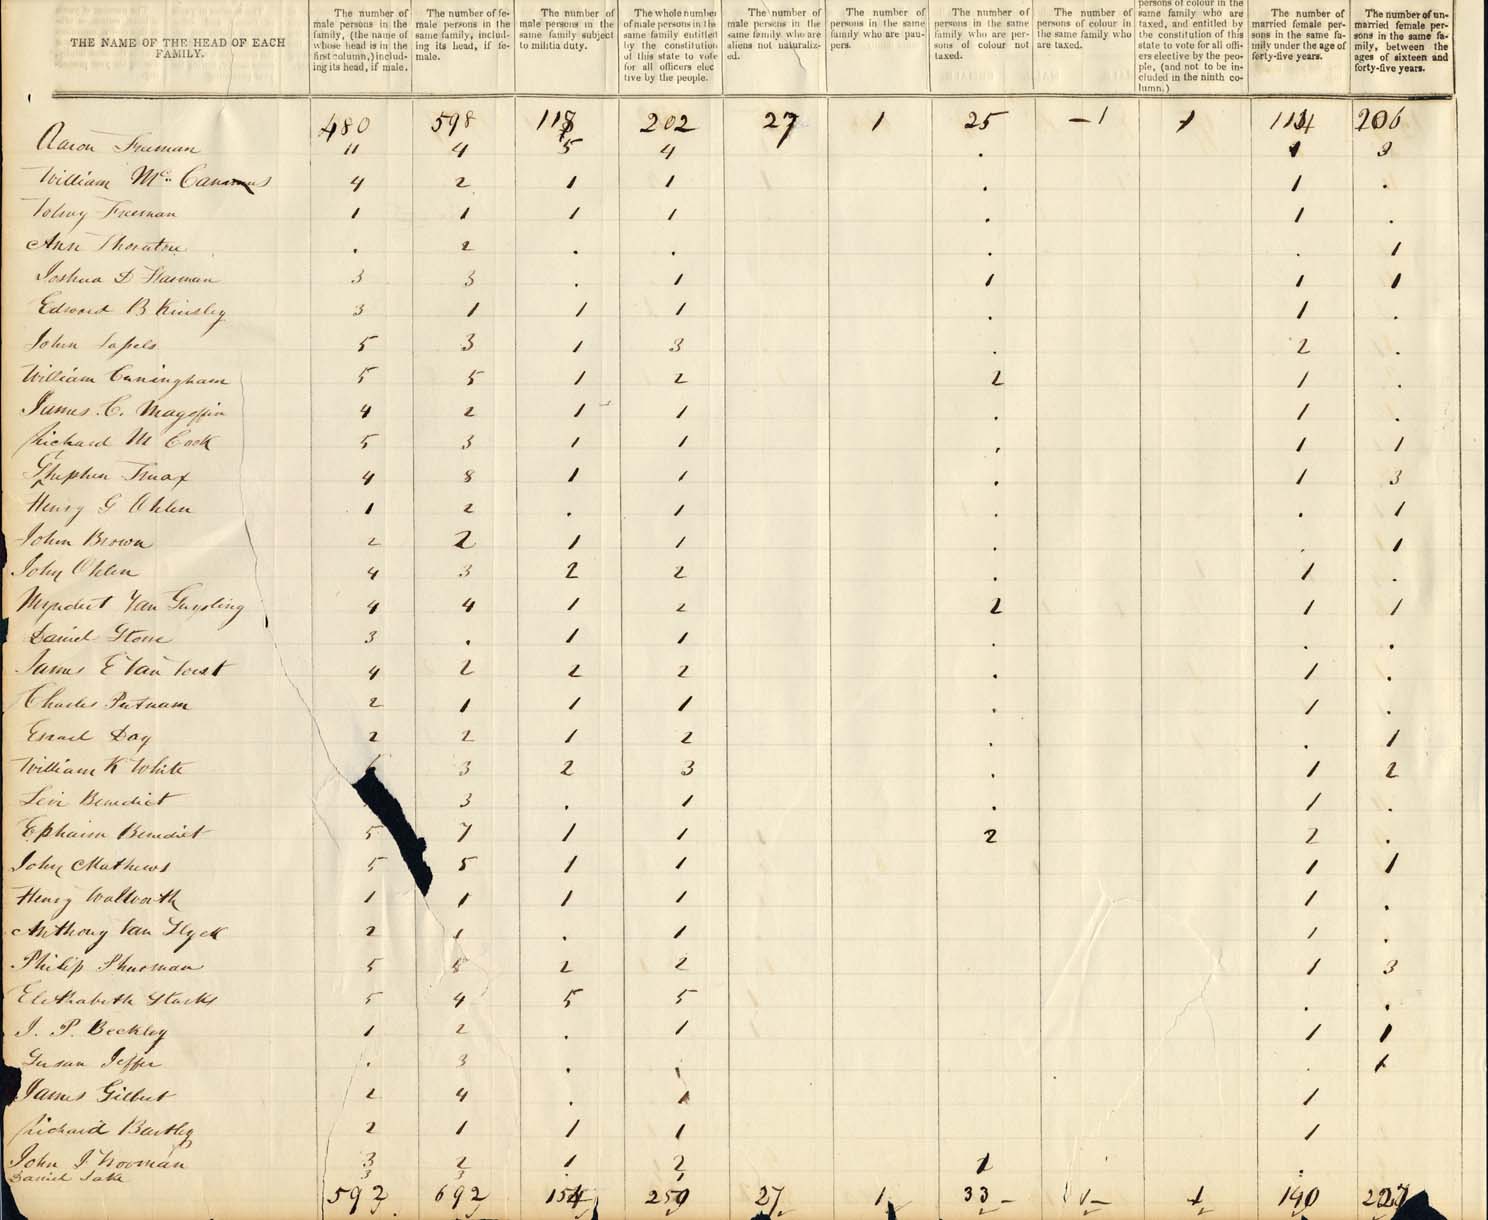 THE NAME OF THE HEAD OF EACH FAMILY.
The number of male persons in the family, (the name of whose head is in the first column,) including its head, if male.
The number of female persons in the same family, including its head, if female.
The number of male persons in the same family subject to militia duty.
The whole number of male persons in the same family entitled by the constitution of this state to vote for all officers elective by the people.
male persons in the same family who are aliens not naturalized.
persons in the same family who are paupers.
persons in the same family who are persons of colour not taxed.
The number of persons of colour in the same family who are taxed.
persons of colour in the same family who are taxed, and entitled by the constitution of this state to vote for all officers elective by the people, (and not to be included in the ninth column.)
The number of married female persons in the same family under the age of forty-five years.
The number of unmarried female persons in the same family, between the ages of sixteen and forty-five years.
480 598 118 202 27 1 25 1 1 114 206
Aaron Freeman 11 4 5 4 . 1 3
William Mc 4 2 1 1 . 1 .
Volney Freeman 1 1 1 1 . 1 .
Ann Thornton . 2 . . . . 1
Joshua D Harman 3 3 . 1 1 1 1
Edward B Kinsley 3 1 1 1 . 1 .
John 5 3 1 3 . 2 .
William Cuningham 5 5 1 2 2 1 .
James C. Magoffin 4 2 1 1 . 1 .
Richard M Cook 5 3 1 1 . 1 1
Sthephen Truax 4 8 1 1 . 1 3
Henry G Ohlen 1 2 . 1 . . 1
John Brown 2 2 1 1 . . 1
John Ohlen 4 3 2 2 . 1 .
Myndert Van Guysling 4 4 1 2 2 1 1
Daniel Stone 3 . 1 1 . . .
James E Van Vorst 4 2 2 2 . 1 .
Charles Putnam 2 1 1 1 . 1 .
Day 2 2 1 2 . . 1
William K White 3 2 3 . 1 2
Levi Benedict 3 . 1 . 1 .
Ephaim Benedict 5 7 1 1 2 2 .
John Mathews 5 5 1 1 1 1
Henry Wallworth 1 1 1 1 1 .
Anthony Van Slyck 2 1 . 1 1 .
Philip 5 2 2 1 3
Elithabeth Starks 5 4 5 5 . .
J. P. Beckley 1 2 . 1 1 1
Susan . 3 . . 1
James Gilbert 2 4 . 1 1
Richard Bartley 2 1 1 1 1
John J Vrooman 3 2 1 2 1 .
Daniel 3 3 . 1
592 692 154 259 27 1 33 1 1 140 227